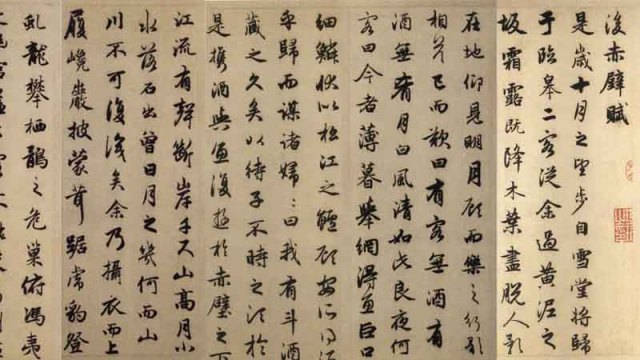 後赤壁賦
是歲十月之望步自雪堂將歸
于臨皋二客從余過黃泥之
坂霜露既降木葉盡脫人影
在地仰見明月顧而樂之行歌
相答已而歎曰有客無酒有
酒無肴月白風清如此良夜何
客曰今者薄暮舉網得魚巨口
細鱗狀似松江之鱸顧安所得酒
乎歸而謀諸婦〻曰我有斗酒
藏之久矣以待子不時之須於
是攜酒與魚復遊於赤壁之下
江流有聲斷岸千尺山高月小
水落石出曾日月之幾何而山
川不可復識矣余乃攝衣而上
履巉巖披蒙茸踞虎豹登
虬龍攀栖鶻之危巢俯馮夷